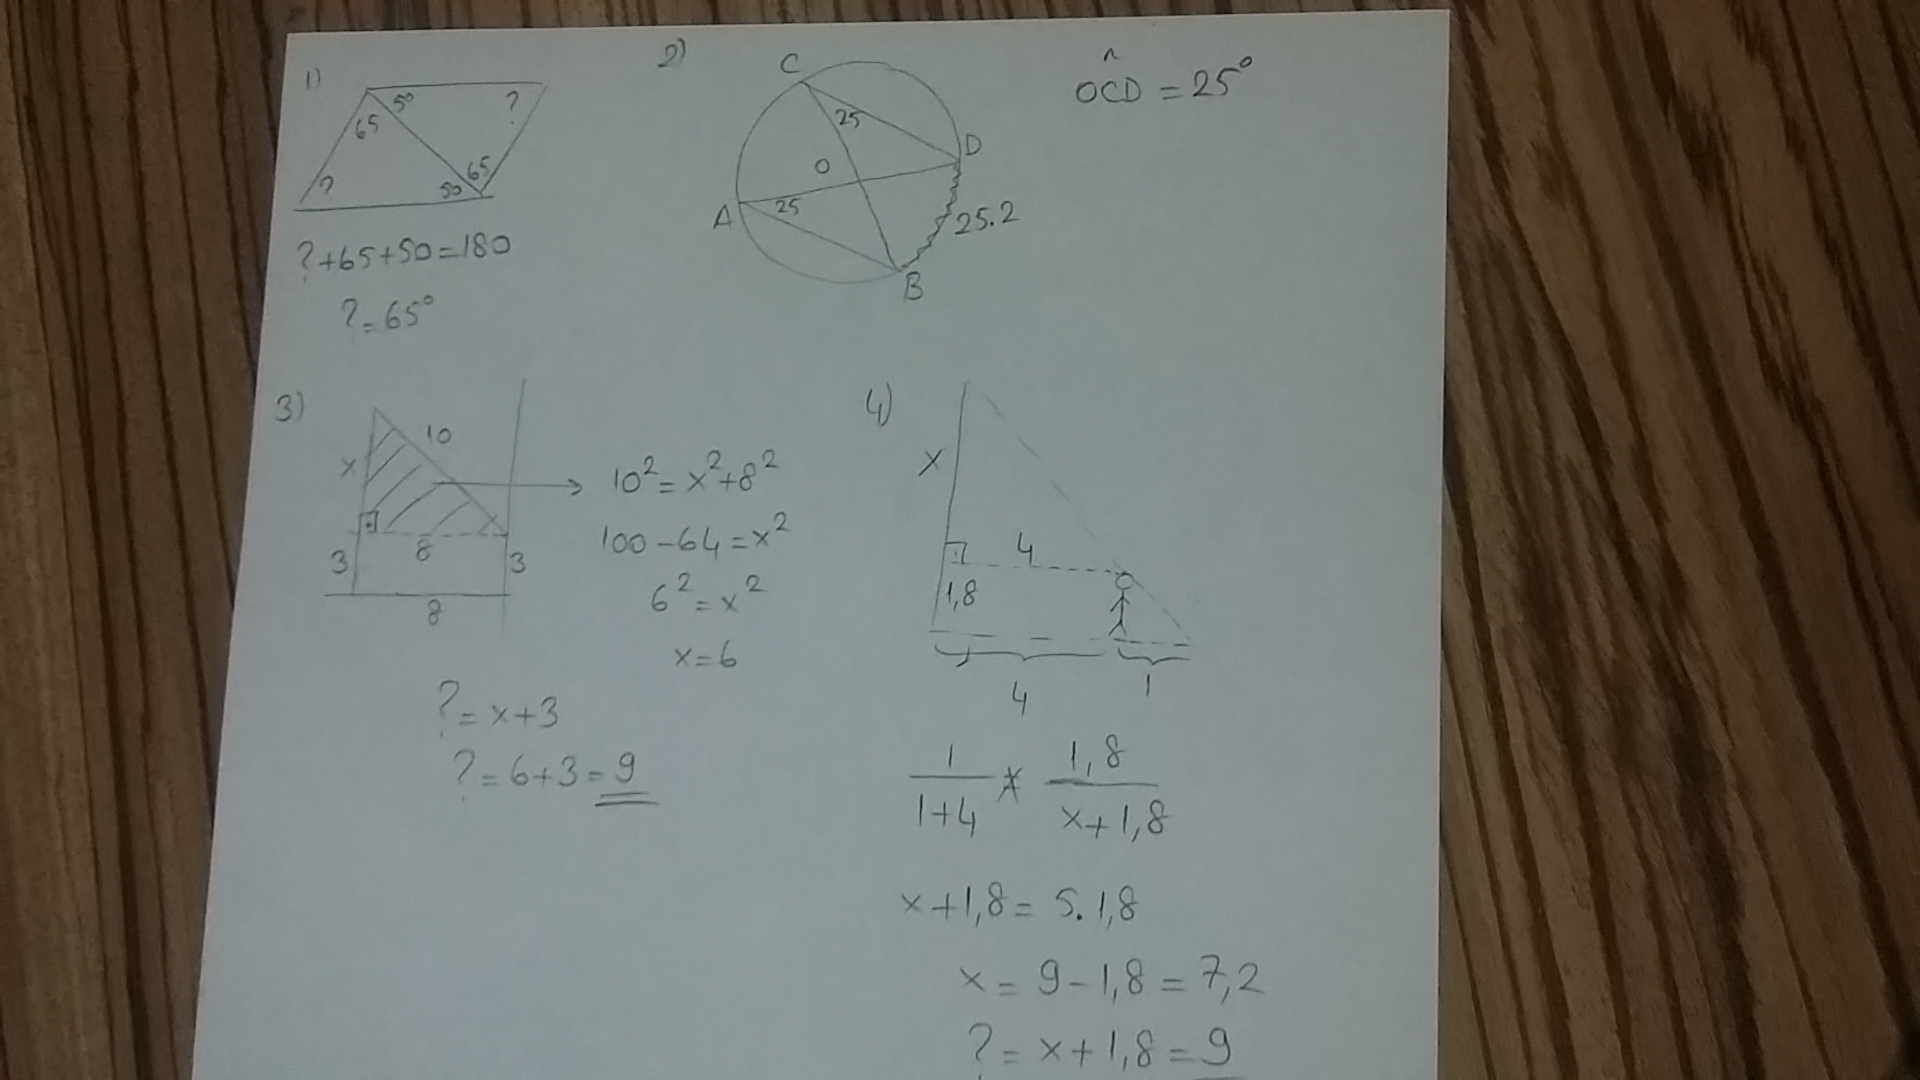 1)
50
?
65
65
?
50
?+65+50=180
?=65°
2)
C
25
D
O
A
25
25.2
B
OĈD = 25°
3)
10
x
8
3
3
8
10² = x²+8²
100-64=x²
6² = x²
x=6
?= x+3
?= 6+3=9
4)
x
4
1,8
4
1
1/(1+4) = 1,8/(x+1,8)
x+1,8= 5.1,8
x = 9-1,8 = 7,2
?= x+1,8=9